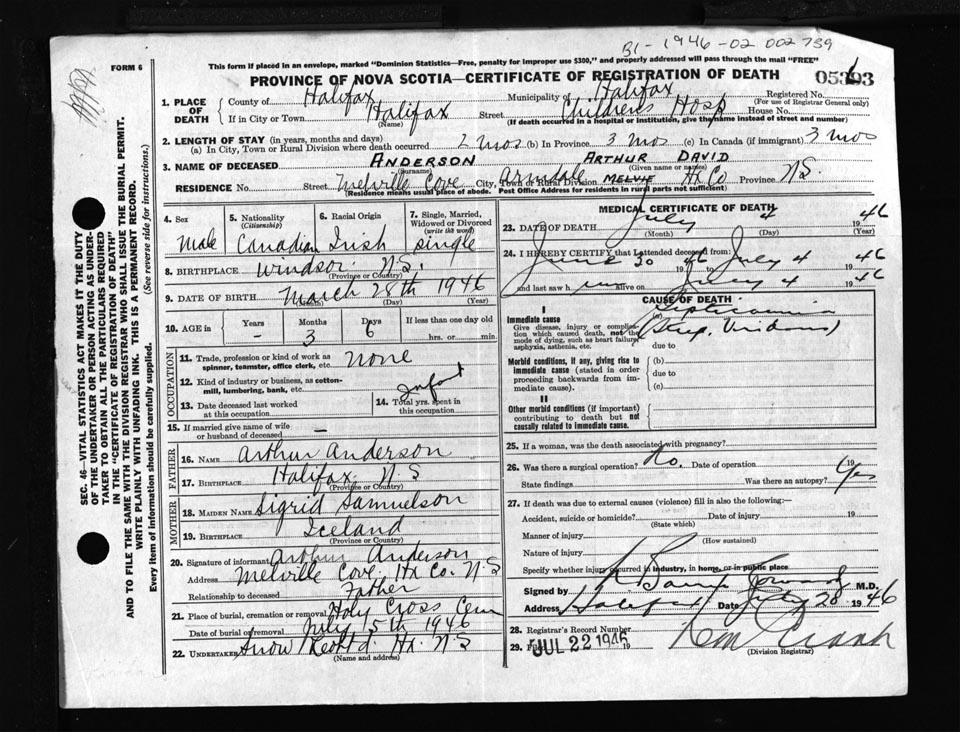 B1-1946-02 002739
FORM 6
This form if placed in an envelope, marked "Dominion Statistics—Free, penalty for improper use $300," and properly addressed will pass through the mail "FREE"
PROVINCE OF NOVA SCOTIA—CERTIFICATE OF REGISTRATION OF DEATH
1. PLACE OF DEATH
County of Halifax Municipality of Halifax Registered No.
(For use of Registrar General only)
If in City or Town Halifax Street Children's Hosp House No.
(Name) (If death occurred in a hospital or institution, give the name instead of street and number)
2. LENGTH OF STAY (in years, months and days)
(a) In City, Town or Rural Division where death occurred 2 mos (b) In Province 3 mos (c) In Canada (if immigrant) 3 mos
3. NAME OF DECEASED ANDERSON ARTHUR DAVID
(Surname) (Given name or names)
RESIDENCE No. Street Melville Cove City, Town or Rural Division Armdale Hx Co Province N.S.
(Residence means usual place of abode. Post Office Address for residents in rural parts not sufficient)
4. Sex 5. Nationality 6. Racial Origin 7. Single, Married,
(Citizenship) Widowed or Divorced
(write the word)
Male Canadian Irish single
8. BIRTHPLACE Windsor N.S.
(Province or Country)
9. DATE OF BIRTH March 28th 1946
(Month) (Day) (Year)
10. AGE in Years Months Days If less than one day old
- 3 6 hrs. or min.
OCCUPATION
11. Trade, profession or kind of work as none
spinner, teamster, office clerk, etc.
12. Kind of industry or business, as cotton-
mill, lumbering, bank, etc. Infant
13. Date deceased last worked 14. Total yrs. spent in
at this occupation this occupation
15. If married give name of wife —
or husband of deceased
FATHER
16. NAME Arthur Anderson
17. BIRTHPLACE Halifax N.S
(Province or Country)
MOTHER
18. MAIDEN NAME Sigrid Samuelson
19. BIRTHPLACE Iceland
(Province or Country)
20. Signature of informant Arthur Anderson
Address Melville Cove Hx Co. N.S
Relationship to deceased Father
21. Place of burial, cremation or removal Holy Cross Cem
Date of burial or removal July 5th 1946
22. UNDERTAKER Snow & Co Ltd. Hx. N.S
(Name and address)
MEDICAL CERTIFICATE OF DEATH
23. DATE OF DEATH July 4 1946
(Month) (Day) (Year)
24. I HEREBY CERTIFY that I attended deceased from:
June 30 1946 to July 4 1946
and last saw h im alive on July 4 1946
CAUSE OF DEATH
I
Immediate cause (a) Septicaemia
Give disease, injury or complica-
tion which caused death, not the
mode of dying, such as heart failure,
asphyxia, asthenia, etc.
(Strep. Viridans)
due to
Morbid conditions, if any, giving rise to (b)
immediate cause (stated in order due to
proceeding backwards from im- (c)
mediate cause).
II
Other morbid conditions (if important)
contributing to death but not
causally related to immediate cause.
25. If a woman, was the death associated with pregnancy?
26. Was there a surgical operation? No. Date of operation 19
State findings Was there an autopsy? Yes
27. If death was due to external causes (violence) fill in also the following:—
Accident, suicide or homicide? Date of injury 19
(State which)
Manner of injury
(How sustained)
Nature of injury
Specify whether injury occurred in industry, in home, or in public place
Signed by M.D.
Address Halifax Date July 20 1946
28. Registrar's Record Number
29. Filed JUL 22 1946 19
(Division Registrar)
SEC. 46—VITAL STATISTICS ACT MAKES IT THE DUTY
OF THE UNDERTAKER OR PERSON ACTING AS UNDER-
TAKER TO OBTAIN ALL THE PARTICULARS REQUIRED
IN THE "CERTIFICATE OF REGISTRATION OF DEATH"
AND TO FILE THE SAME WITH THE DIVISION REGISTRAR WHO SHALL ISSUE THE BURIAL PERMIT.
WRITE PLAINLY WITH UNFADING INK. THIS IS A PERMANENT RECORD.
Every item of information should be carefully supplied. (See reverse side for instructions.)